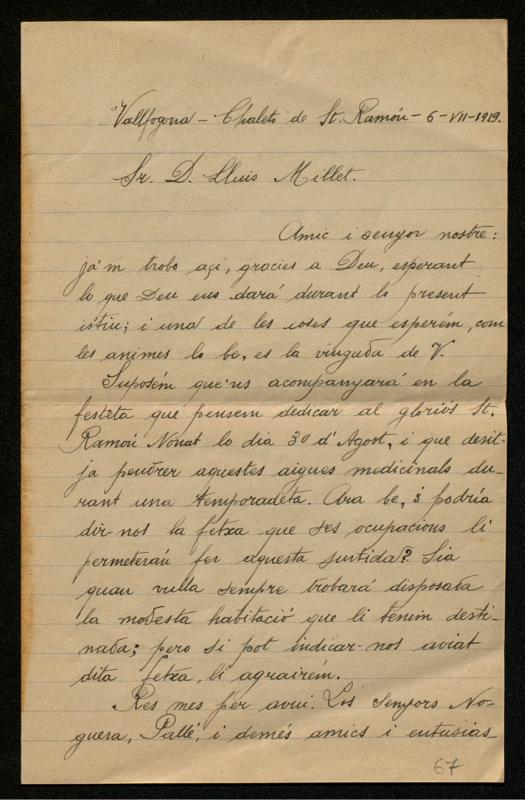 Vallfogona - Chalets de St. Ramón - 6-VII-1919.
Sr. D. Lluis Millet.
Amic i senyor nostre:
já'm trobo açi, gracies a Deu, esperant
lo que Deu ens dará durant lo present
istiu; i una de les coses que esperém, com
les animes lo be, es la vinguda de V.
Suposém que'ns acompanyará en la
festeta que pensem dedicar al gloriós St.
Ramón Nonat lo dia 30 d'Agost, i que desit-
ja pendrer aquestes aigues medicinals du-
rant una temporadeta. Ara be, ¿ podría
dir-nos la fetxa que ses ocupacions li
permeterán fer aquesta surtida? Sia
quan vulla sempre trobará disposada
la modesta habitació que li tenim desti-
nada; pero si pot indicar-nos aviat
dita fetxa, li agrairém.
Res mes per avui. Los senyors No-
guera, Pallé, i demés amics i entusias-
67